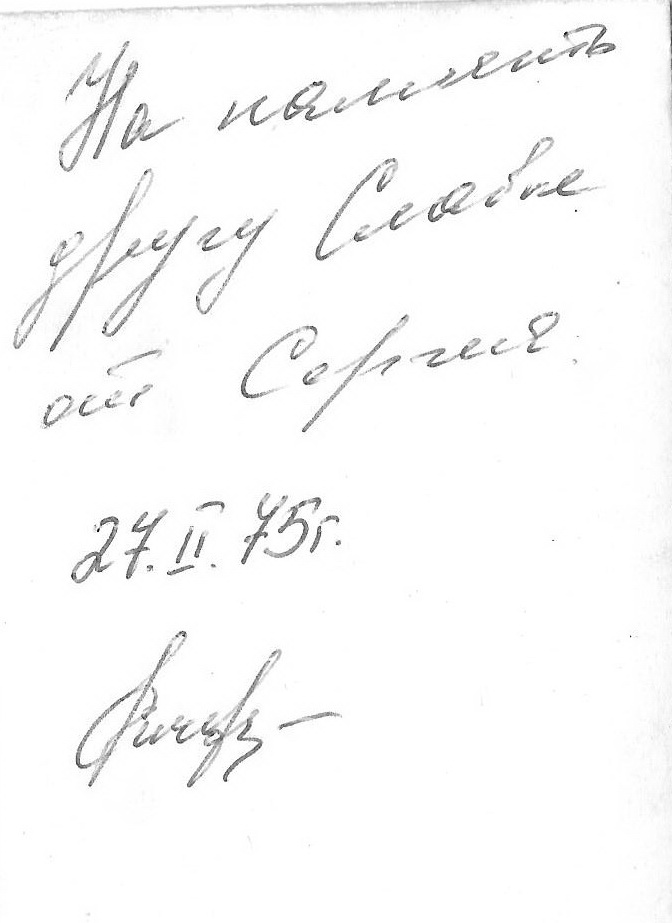 На память
другу Славке
от Сергея.
27.II.75г.